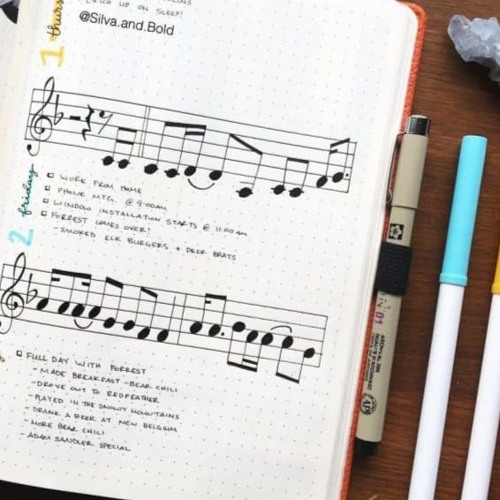 CATCH UP ON SLEEP!
@Silva.and.Bold
1 thurs
WORK FROM HOME
PHONE MTG. @ 9:00AM
WINDOW INSTALLATION STARTS @ 11:00AM
FORREST COMES OVER!
- SMOKED ELK BURGERS + DEER BRATS
2 friday
FULL DAY WITH FORREST
- MADE BREAKFAST - BEAR CHILI
- DROVE OUT TO REDFEATHER
- PLAYED IN THE SNOWY MOUNTAINS
- DRANK A BEER AT NEW BELGIUM
- MORE BEAR CHILI
- ADAM SANDLER SPECIAL
01